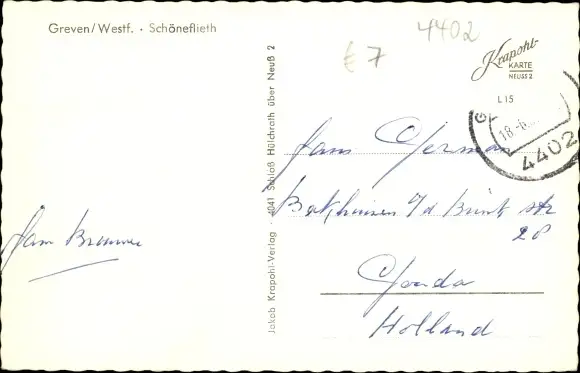 Greven/Westf. · Schöneflieth
4402
€ 7
Krapohl-
KARTE
NEUSS 2
L 15
18.-6.
4402
Jakob Krapohl-Verlag · 4041 Schloß Hülchrath über Neuß 2
Hans German
str
28
Gouda
Holland
Ham